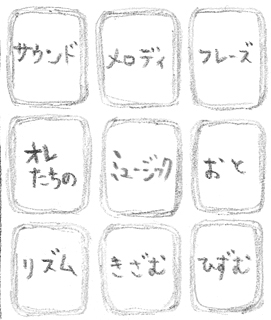 サウンド
メロディ
フレーズ
オレ
たちの
ミュージック
おと
リズム
きざむ
ひずむ